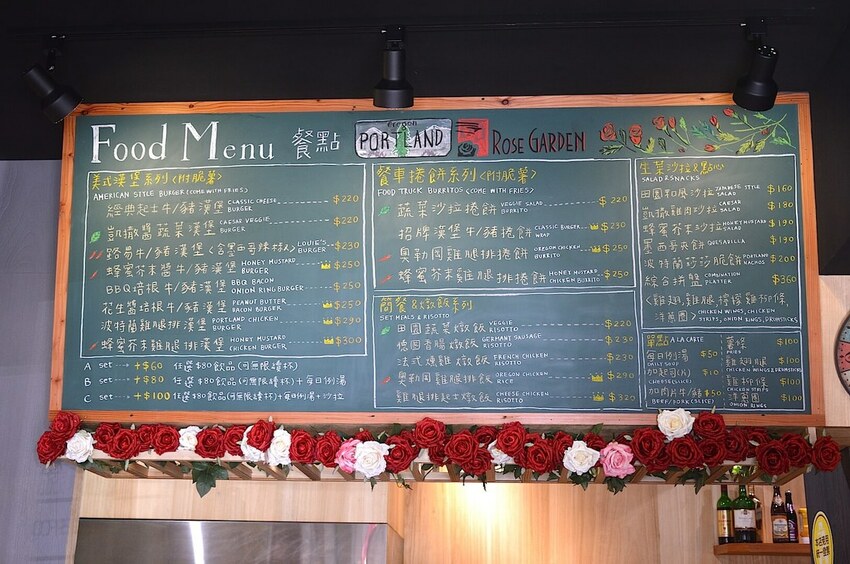 Food Menu 餐點
Oregon
PORTLAND
ROSE GARDEN
美式漢堡系列<附脆薯>
AMERICAN STYLE BURGER (COME WITH FRIES)
經典起士牛/豬漢堡 CLASSIC CHEESE BURGER $220
凱撒醬蔬菜漢堡 CAESAR VEGGIE BURGER $220
路易牛/豬漢堡<含墨西哥辣椒> LOUIE'S BURGER $230
蜂蜜芥末醬牛/豬漢堡 HONEY MUSTARD BURGER $250
BBQ培根牛/豬漢堡 BBQ BACON ONION RING BURGER $250
花生醬培根牛/豬漢堡 PEANUT BUTTER BACON BURGER $250
波特蘭雞腿排漢堡 PORTLAND CHICKEN BURGER $290
蜂蜜芥末雞腿排漢堡 HONEY MUSTARD CHICKEN BURGER $300
A SET → +$60 任選$80飲品(可無限續杯)
B SET → +$80 任選$80飲品(可無限續杯)+每日例湯
C SET → +$100 任選$80飲品(可無限續杯)+每日例湯+沙拉
餐車捲餅系列<附脆薯>
FOOD TRUCK BURRITOS (COME WITH FRIES)
蔬菜沙拉捲餅 VEGGIE SALAD BURRITO $220
招牌漢堡牛/豬捲餅 CLASSIC BURGER WRAP $230
奧勒岡雞腿排捲餅 OREGON CHICKEN BURRITO $250
蜂蜜芥末雞腿排捲餅 HONEY MUSTARD CHICKEN BURRITO $250
簡餐&燉飯系列
SET MEALS & RISOTTO
田園蔬菜燉飯 VEGGIE RISOTTO $220
德國香腸燉飯 GERMANY SAUSAGE RISOTTO $230
法式燻雞燉飯 FRENCH CHICKEN RISOTTO $230
奧勒岡雞腿飯 OREGON CHICKEN RICE $290
雞腿排起士燉飯 CHEESE CHICKEN RISOTTO $320
生菜沙拉&點心
SALAD & SNACKS
田園和風沙拉 JAPANESE STYLE SALAD $160
凱撒雞肉沙拉 CAESAR SALAD $180
蜂蜜芥末沙拉 HONEY MUSTARD SALAD $190
墨西哥夾餅 QUESADILLA $190
波特蘭莎莎脆餅 PORTLAND NACHOS $200
綜合拼盤 COMBINATION PLATTER $360
<雞翅,雞腿,檸檬雞柳條,
洋蔥圈> CHICKEN WINGS, CHICKEN
STRIPS, ONION RINGS, DRUMSTICKS
單點 A LA CARTE
每日例湯 DAILY SOUP $50
加起司(片) CHEESE (SLICE) $10
加肉片牛/豬 BEEF/PORK (SLICE) $50
薯條 FRIES $100
雞翅腿 CHICKEN WINGS & DRUMSTICKS $100
雞柳條 CHICKEN STRIPS $100
洋蔥圈 ONION RINGS $100